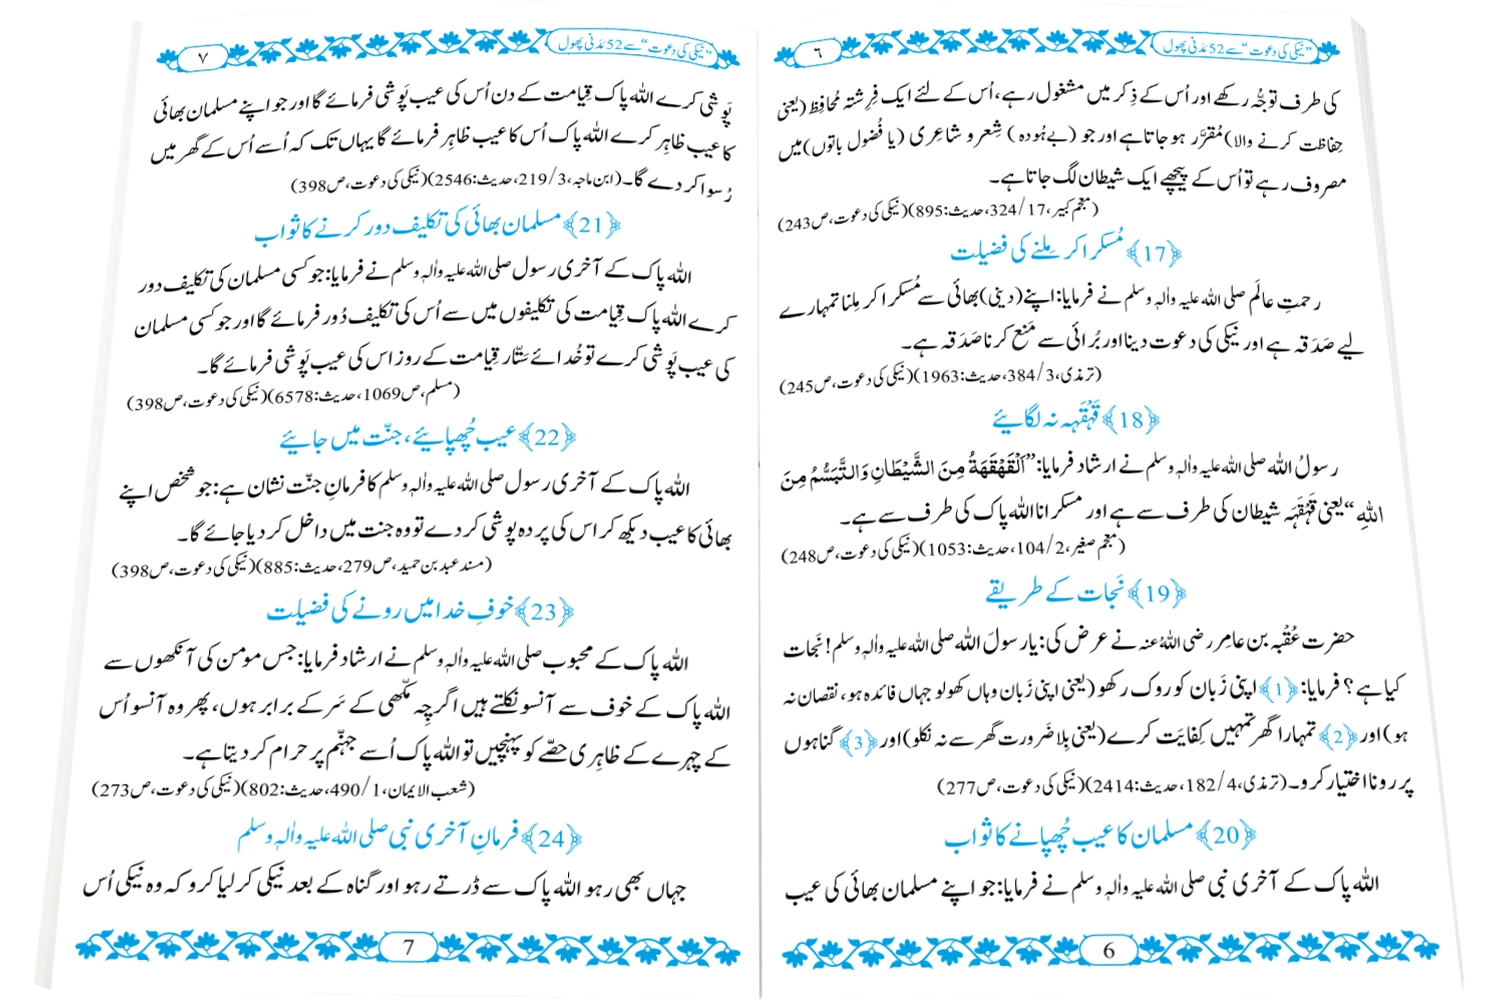 ۶
”نیکی کی دعوت“ سے 52 مدنی پھول
کی طرف توجُّہ رکھے اور اُس کے ذِکر میں مشغول رہے، اُس کے لئے ایک فِرِشتہ مُحافِظ (یعنی
حِفاظت کرنے والا) مُقَرَّر ہو جاتا ہے اور جو (بے ہُودہ) شِعر و شاعِری (یا فُضول باتوں) میں
مصروف رہے تو اُس کے پیچھے ایک شیطان لگ جاتا ہے۔
(معجم کبیر، 17/324، حدیث: 895)(نیکی کی دعوت، ص243)
﴿17﴾ مُسکرا کر مِلنے کی فضیلت
رحمتِ عالَم صلی اللہ علیہ واٰلہٖ وسلم نے فرمایا: اپنے (دینی) بھائی سے مُسکرا کر مِلنا تمہارے
لیے صَدَقہ ہے اور نیکی کی دعوت دینا اور بُرائی سے مَنع کرنا صَدَقہ ہے۔
(ترمذی، 3/384، حدیث: 1963)(نیکی کی دعوت، ص245)
﴿18﴾ قَہْقَہہ نہ لگائیے
رسولُ اللہ صلی اللہ علیہ واٰلہٖ وسلم نے ارشاد فرمایا: ”اَلْقَهْقَهَةُ مِنَ الشَّيْطَانِ وَالتَّبَسُّمُ مِنَ
اللهِ“ یعنی قَہْقَہَہ شیطان کی طرف سے ہے اور مسکرانا اللہ پاک کی طرف سے ہے۔
(معجم صغیر، 2/104، حدیث: 1053)(نیکی کی دعوت، ص248)
﴿19﴾ نَجات کے طریقے
حضرت عُقْبہ بن عامِر رضی اللہُ عنہ نے عرض کی: یارسولَ اللہ صلی اللہ علیہ واٰلہٖ وسلم! نَجات
کیا ہے؟ فرمایا: ﴿1﴾ اپنی زَبان کو روک رکھو (یعنی اپنی زَبان وہاں کھولو جہاں فائدہ ہو، نقصان نہ
ہو) اور ﴿2﴾ تمہارا گھر تمہیں کِفایَت کرے (یعنی بِلا ضَرورت گھر سے نہ نکلو) اور ﴿3﴾ گناہوں
پر رونا اختیار کرو۔ (ترمذی، 4/182، حدیث: 2414)(نیکی کی دعوت، ص277)
﴿20﴾ مسلمان کا عیب چُھپانے کا ثواب
اللہ پاک کے آخری نبی صلی اللہ علیہ واٰلہٖ وسلم نے فرمایا: جو اپنے مسلمان بھائی کی عیب
6
”نیکی کی دعوت“ سے 52 مدنی پھول
۷
پَوشی کرے اللہ پاک قِیامت کے دن اُس کی عیب پَوشی فرمائے گا اور جو اپنے مسلمان بھائی
کا عیب ظاہِر کرے اللہ پاک اُس کا عیب ظاہِر فرمائے گا یہاں تک کہ اُسے اُس کے گھر میں
رُسوا کر دے گا۔ (ابن ماجہ، 3/219، حدیث: 2546)(نیکی کی دعوت، ص398)
﴿21﴾ مسلمان بھائی کی تکلیف دور کرنے کا ثواب
اللہ پاک کے آخری رسول صلی اللہ علیہ واٰلہٖ وسلم نے فرمایا: جو کسی مسلمان کی تکلیف دور
کرے اللہ پاک قِیامت کی تکلیفوں میں سے اُس کی تکلیف دُور فرمائے گا اور جو کسی مسلمان
کی عیب پَوشی کرے تو خُدائے ستّار قِیامت کے روز اس کی عیب پَوشی فرمائے گا۔
(مسلم، ص1069، حدیث: 6578)(نیکی کی دعوت، ص398)
﴿22﴾ عیب چُھپائیے، جنّت میں جائیے
اللہ پاک کے آخری رسول صلی اللہ علیہ واٰلہٖ وسلم کا فرمانِ جنّت نشان ہے: جو شخص اپنے
بھائی کا عیب دیکھ کر اس کی پردہ پوشی کر دے تو وہ جنت میں داخل کر دیا جائے گا۔
(مسند عبد بن حمید، ص279، حدیث: 885)(نیکی کی دعوت، ص398)
﴿23﴾ خوفِ خدا میں رونے کی فضیلت
اللہ پاک کے محبوب صلی اللہ علیہ واٰلہٖ وسلم نے ارشاد فرمایا: جس مومن کی آنکھوں سے
اللہ پاک کے خوف سے آنسو نکلتے ہیں اگرچِہ مکّھی کے سَر کے برابر ہوں، پھر وہ آنسو اُس
کے چہرے کے ظاہِری حصّے کو پہنچیں تو اللہ پاک اُسے جہنّم پر حرام کر دیتا ہے۔
(شعب الایمان، 1/490، حدیث: 802)(نیکی کی دعوت، ص273)
﴿24﴾ فرمانِ آخری نبی صلی اللہ علیہ واٰلہٖ وسلم
جہاں بھی رہو اللہ پاک سے ڈرتے رہو اور گناہ کے بعد نیکی کر لیا کرو کہ وہ نیکی اُس
7